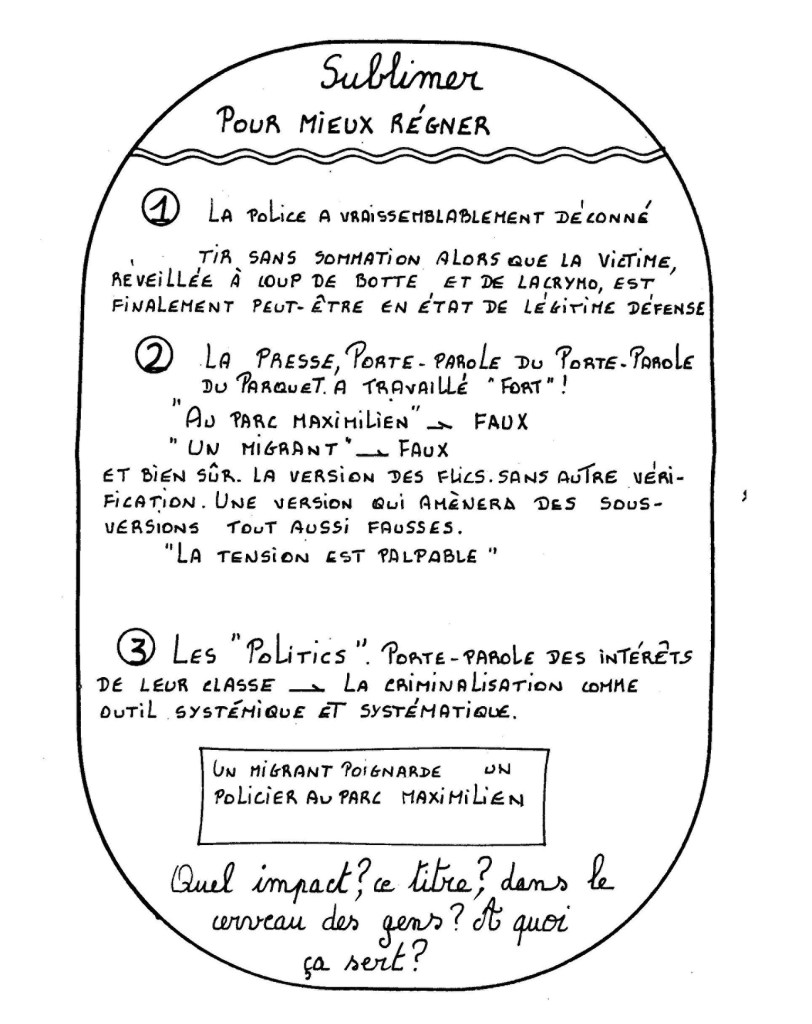 Sublimer
POUR MIEUX RÉGNER
1 LA POLICE A VRAISSEMBLABLEMENT DÉCONNÉ
TIR SANS SOMMATION ALORS QUE LA VICTIME,
RÉVEILLÉE À COUP DE BOTTE ET DE LACRYMO, EST
FINALEMENT PEUT-ÊTRE EN ÉTAT DE LÉGITIME DÉFENSE
2 LA PRESSE, PORTE-PAROLE DU PORTE-PAROLE
DU PARQUET. A TRAVAILLÉ "FORT"!
"AU PARC MAXIMILIEN" → FAUX
"UN MIGRANT" → FAUX
ET BIEN SÛR. LA VERSION DES FLICS. SANS AUTRE VÉRI-
FICATION. UNE VERSION QUI AMÈNERA DES SOUS-
VERSIONS TOUT AUSSI FAUSSES.
"LA TENSION EST PALPABLE"
3 LES "POLITICS". PORTE-PAROLE DES INTÉRÊTS
DE LEUR CLASSE → LA CRIMINALISATION COMME
OUTIL SYSTÉMIQUE ET SYSTÉMATIQUE.
UN MIGRANT POIGNARDE UN
POLICIER AU PARC MAXIMILIEN
Quel impact? ce titre? dans le
cerveau des gens? A quoi
ça sert?